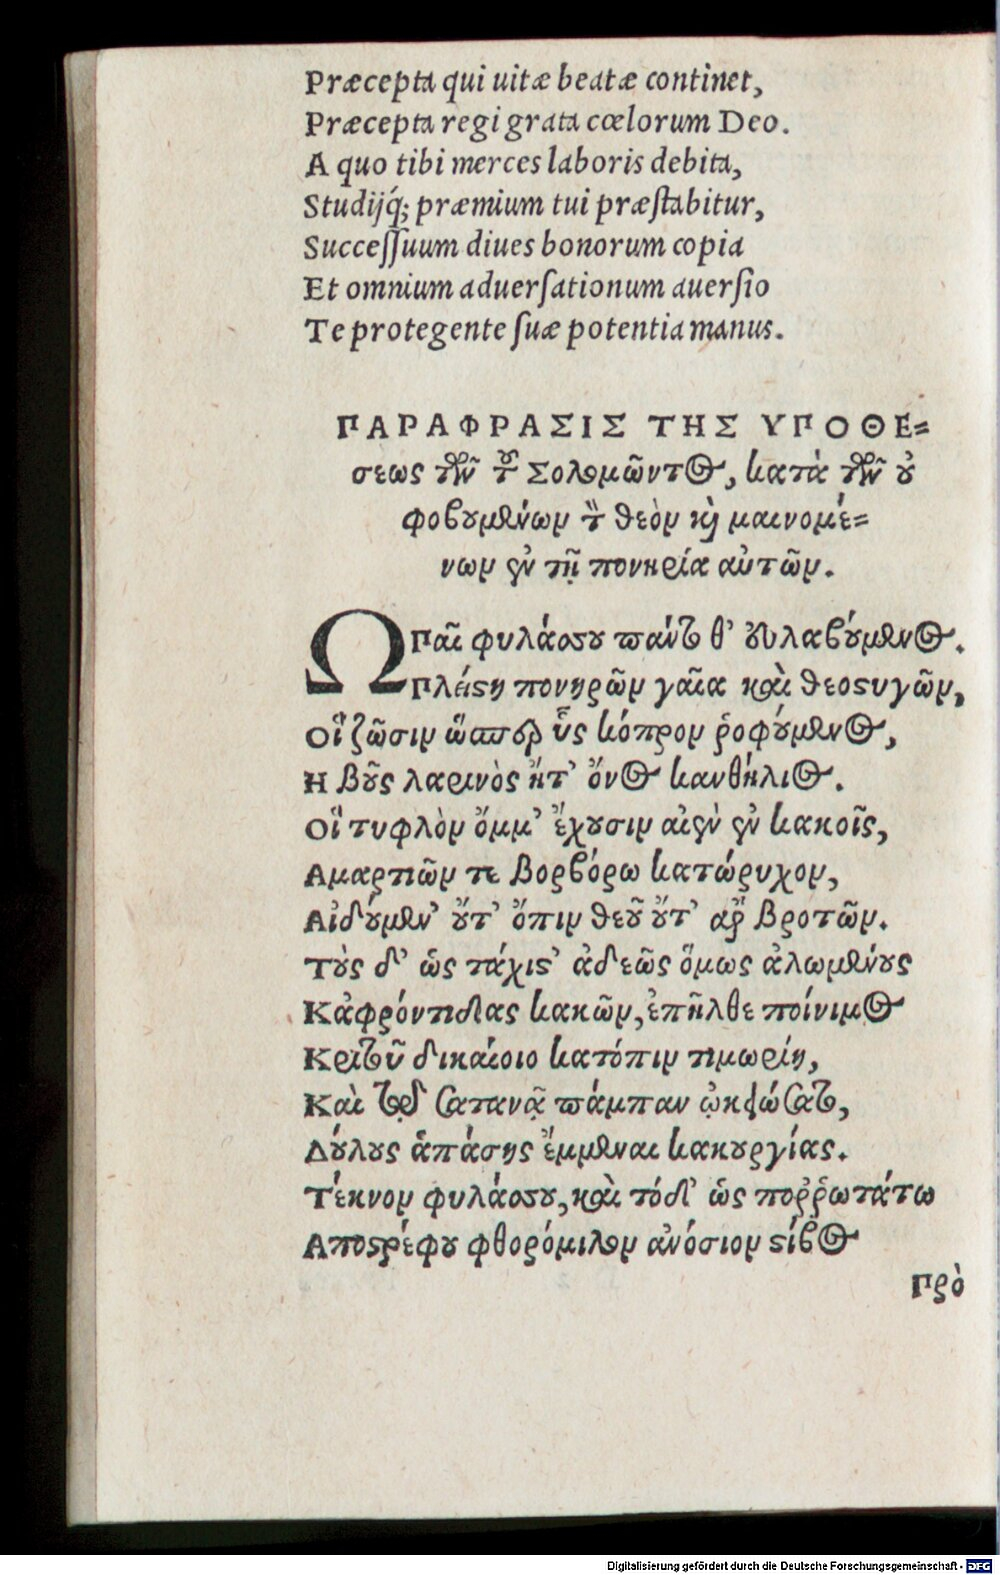 Præcepta qui uitæ beatæ continet,
Præcepta regi grata cœlorum Deo.
A quo tibi merces laboris debita,
Studijq́; præmium tui præſtabitur,
Succeſſuum diues bonorum copia
Et omnium aduerſationum auerſio
Te protegente ſuæ potentia manus.
ΠΑΡΑΦΡΑΣΙΣ ΤΗΣ ΥΠΟΘΕ=
σεως τῶν τοῦ Σολομῶντος, κατὰ τῶν οὐ
φοβουμένων τὸν θεὸν καὶ μαινομέ=
νων ἐν τῇ πονηρίᾳ αὐτῶν.
Ω Παῖ φυλάσσου πάντοθ' εὐλαβούμενος.
Πλείστη πονηρῶν γαῖα καὶ θεοστυγῶν,
Οἳ ζῶσιν ὥσπερ ὗς κόπρον ῥοφούμενος,
Η βοῦς λαρινὸς ἤτ' ὄνος κανθήλιος.
Οἳ τυφλὸν ὄμμ' ἔχουσιν αἰὲν ἐν κακοῖς,
Αμαρτιῶν τε βορβόρω κατώρυχον,
Αἰδούμεν' οὔτ' ὄπιν θεοῦ οὔτ' βροτῶν.
Τοὺς δ' ὡς τάχιστ' ἀδεῶς ὅμως ἀλωμένους
Κἀφρόντιδας κακῶν, ἐπῆλθε ποίνιμος
Κριτοῦ δικαίοιο κατόπιν τιμωρίη,
Καὶ σατανᾷ πάμπαν ᾠκειώσατο,
Δούλους ἁπάσης ἔμμεναι κακουργίας.
Τέκνον φυλάσσου, καὶ τόδ' ὡς ποῤῥωτάτω
Αποστρέφου φθορόμιλον ἀνόσιον στίβος
Πρὸ
Digitalisierung gefördert durch die Deutsche Forschungsgemeinschaft - DFG